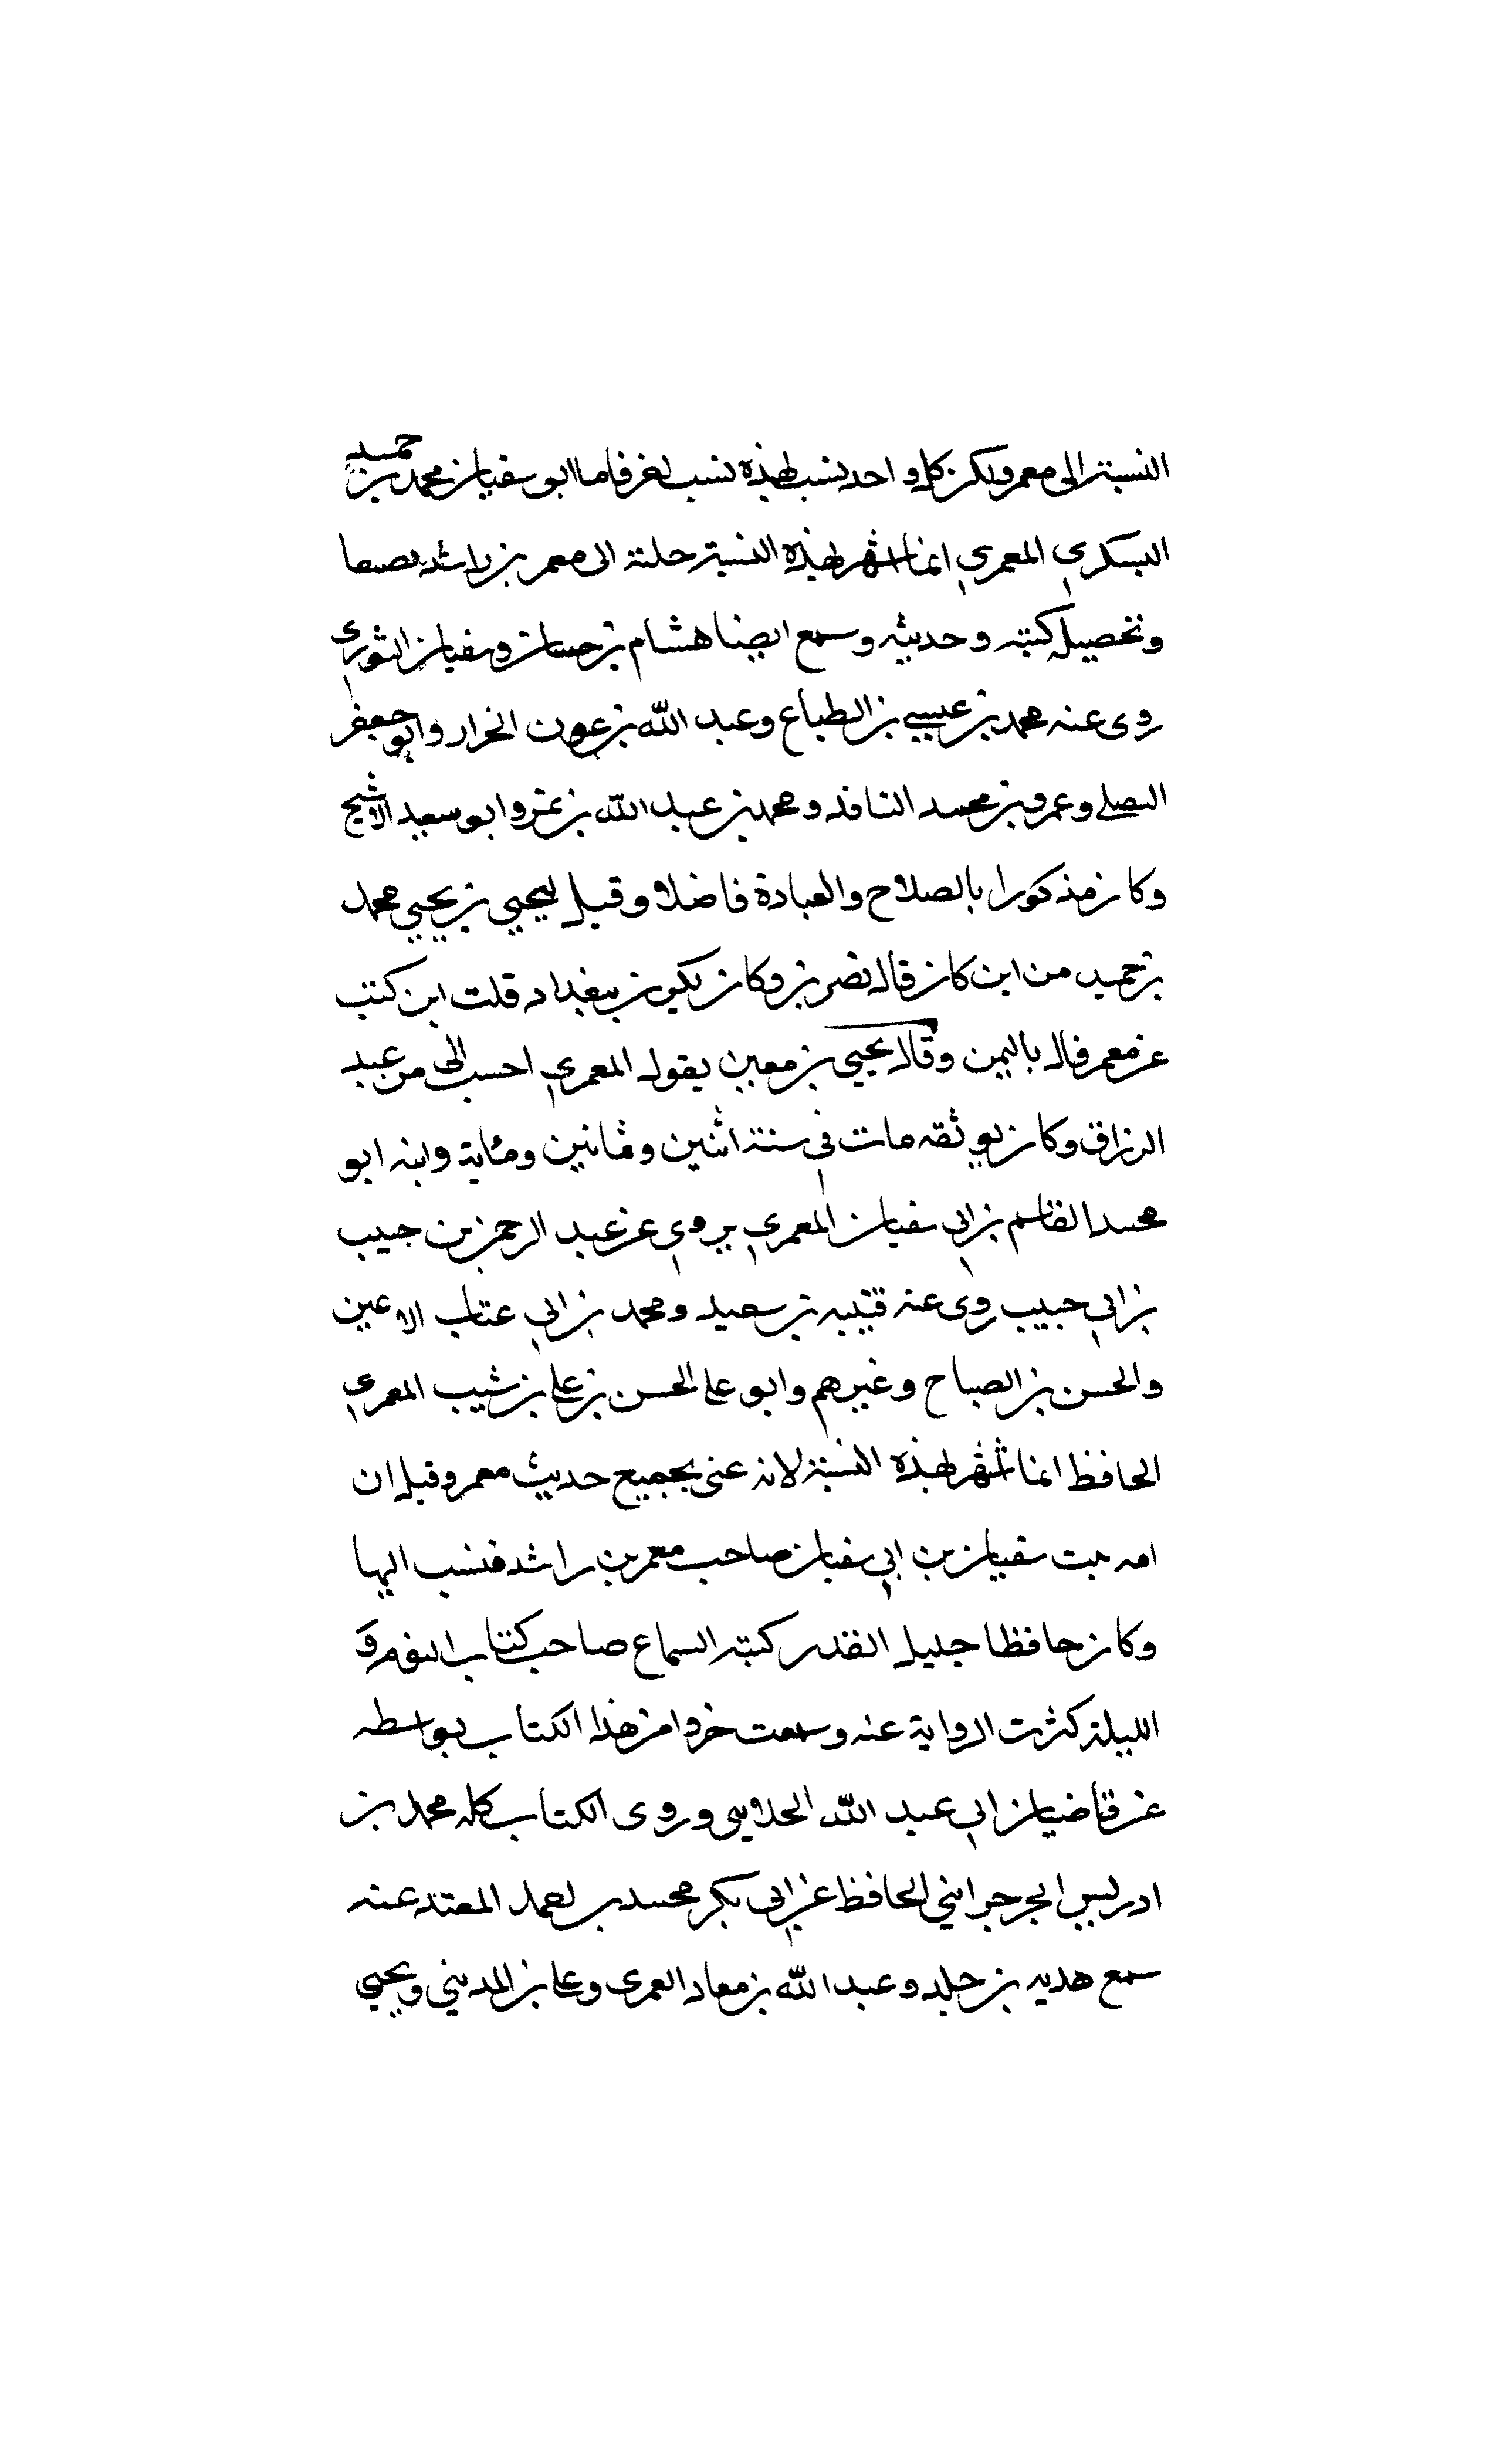 النسبة الى معمر ولكن كل واحد نسب لهذه نسب لغز فاما ابو سفيان محمد بن حميد
اليسكري المعمري انما اشتهر لهذه النسبة رحلته الى معمر بن راشد بصنعا
وتحصيل كتبه وحديثه وسمع ايضا هشام بن حسان وسفيان الثوري
روى عنه محمد بن عيسى بن الطباع وعبد الله بن عون الخراز وابو جعفر
النفيلي وعمرو بن محمد الناقد ومحمد بن عبد الله بن نمير وابو سعيد الاشج
وكان مذكورا بالصلاح والعبادة فاضلا وقيل ليحيى بن يحيى محمد
بن حميد من اين كان قال بصرى وكان يكون ببغداد قلت اين كتب
عن معمر قال باليمن وقال يحيى بن معين يقول المعمري احب الي من عبد
الرزاق وكان ثقه مات في سنة اثنين وثمانين ومئاية وابنه ابو
محمد القاسم بن ابي سفيان المعمري يروي عن عبد الرحمن بن حبيب
بن ابي حبيب روى عنه قتيبه بن سعيد ومحمد بن ابي عتاب الاعين
والحسن بن الصباح وغيرهم وابو علي الحسن بن علي بن شبيب المعمري
الحافظ انما اشتهر لهذه النسبة لانه عنى بجميع حديث معمر وقيل ان
امه بنت سفيان بن ابي سفيان صاحب معمر بن راشد فنسب اليها
وكان حافظا جليل القدر كتبه السماع صاحب كتاب اليوم و
الليلة كثرت الرواية عنه وسمعت جزوا من هذا الكتاب بواسطه
عن قاضيان ابي عبد الله الجلابي وروى الكتاب كله محمد بن
ادريس الجرجراني الحافظ عن ابي بكر محمد بن احمد المفيد عنه
سمع هدبه بن خلد وعبد الله بن معاذ العمرى وعلي بن المديني ويحيى